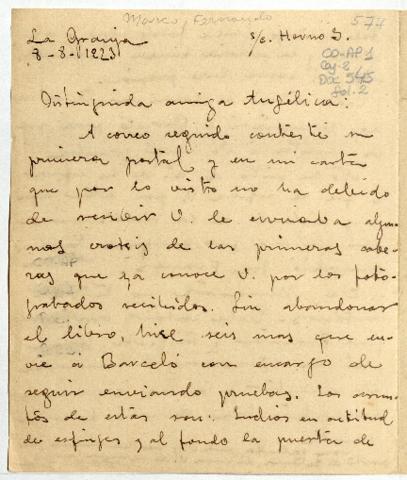 Marco, Fernando
574
La Granja s/c. Horno 5.
8-8-1923
CO-AP 1
Cg-8
Doc 545
fol. 2
Distinguida amiga Angélica:
A correo seguido contesté su
primera postal y en mi carta
que por lo visto no ha debido
de recibir V. le enviaba algu-
nos croquis de las primeras cabe-
ras que ya conoce V. por los foto-
grabados recibidos. Sin abandonar
el libro, hice seis mas que en-
vié á Barceló con encargo de
seguir enviando pruebas. Los asun-
tos de estas son: Indios en actitud
de esfinjes y al fondo la puerta de